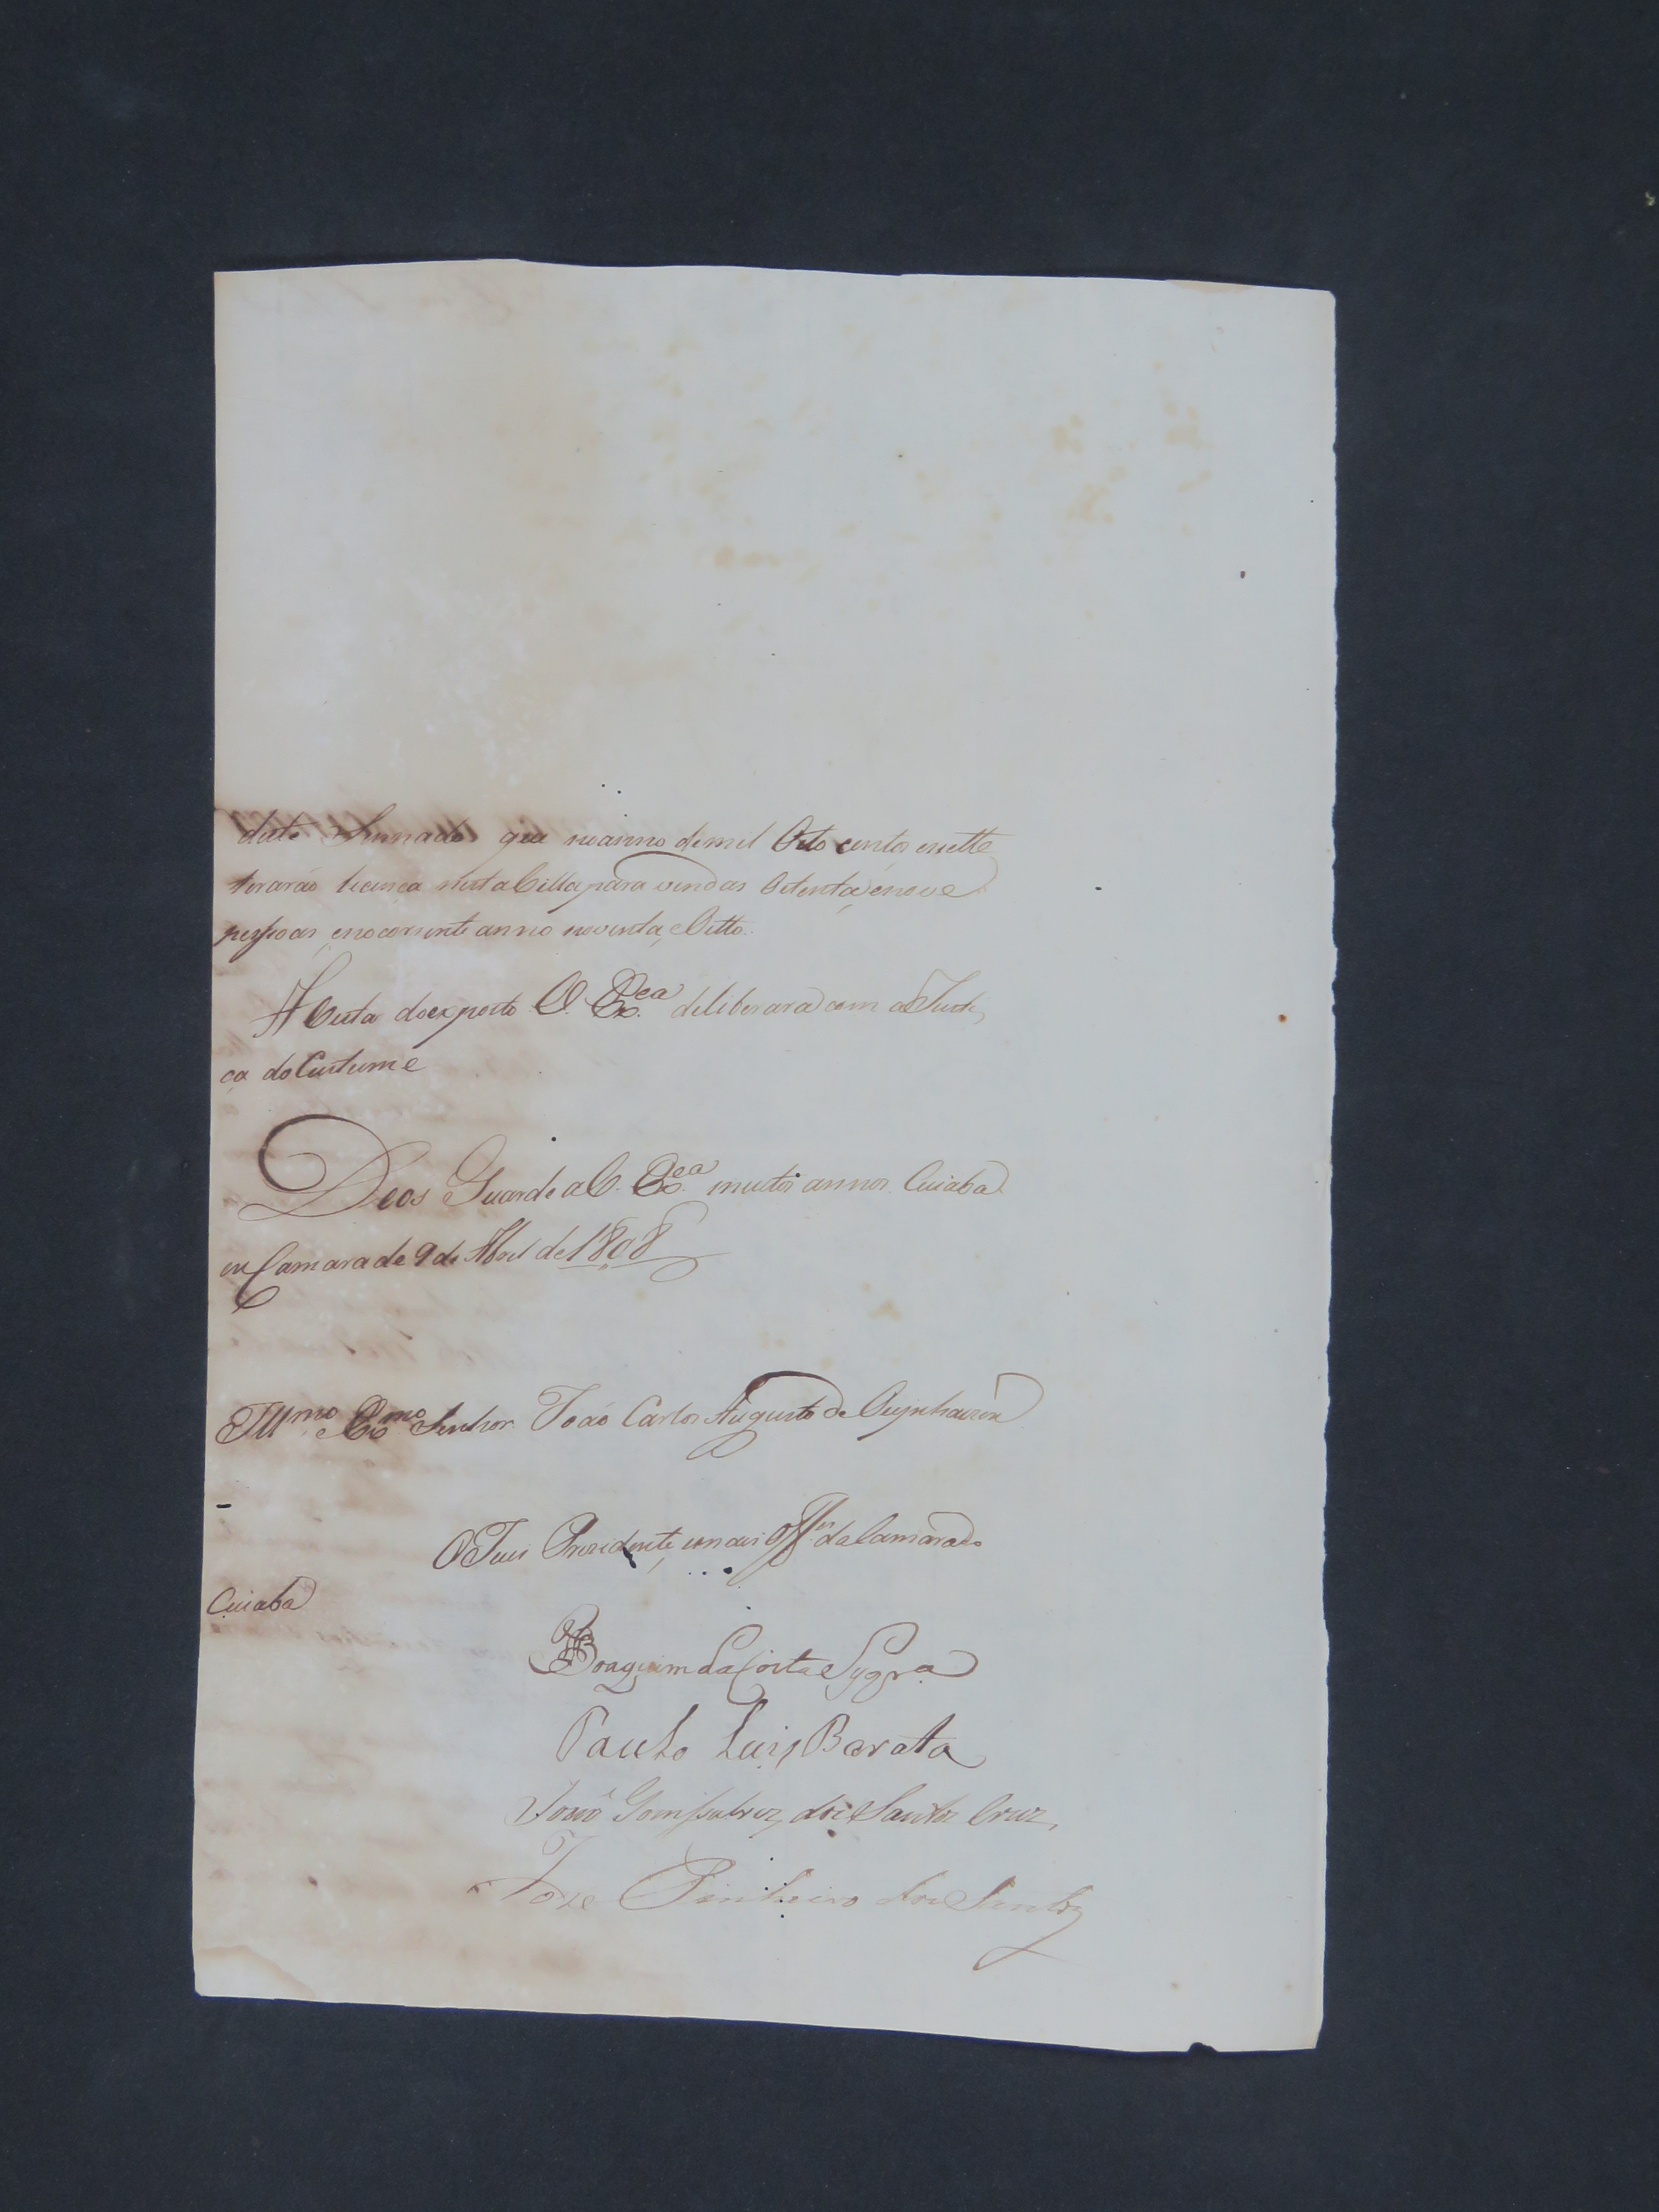 deste Sennado que no anno de mil Oito centos e sette
terarão licença nesta Villa para vendas Oitenta, e nove
pessoas, e no corrente anno noventa, e Oitto.
A Vista do exposto V. Exca. deliberará com a Justi,
ça do Custume
Deos Guarde a V. Exca. muitos annos Cuiabá
em Camara de 9 de Abril de 1808
Illmo. e Exmo. Senhor João Carlos Augusto de Oeynhausen
O Juis Prezidente, e mais Offes. da Camara do
Cuiabá
Joaquim da Costa Syqra.
Paulo Luis Barata
João Gomssalvez dos Santos Cruz,
Joze Pinheiro dos Santos